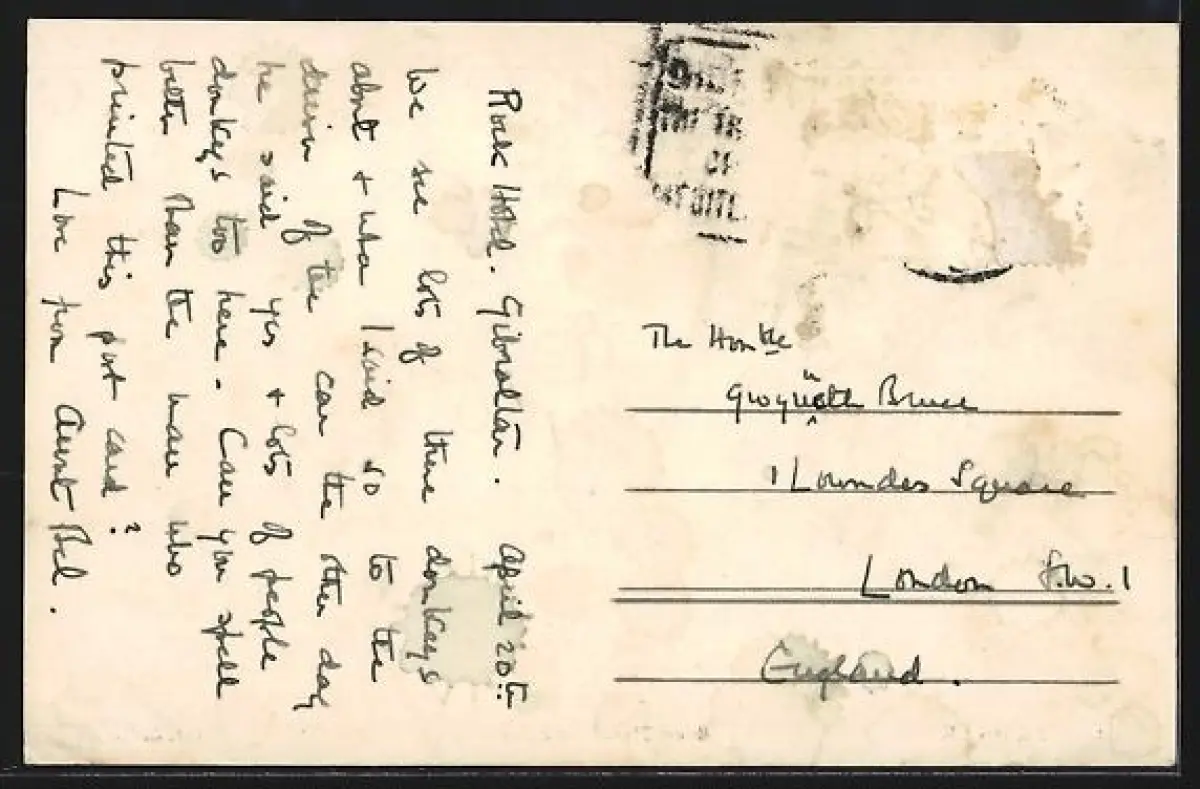 Rock Hotel. Gibraltar. April 20th.
We see lots of these donkeys
about + when I said so to the
driver of the car the other day
he said yes + lots of people
donkeys too here. Can you spell
better than the man who
printed this post card?
Love from Aunt Bel.
The Honble
Gwyneth Bruce
1 Lowndes Square
London S.W.1
England.